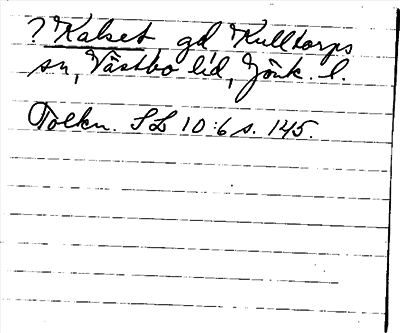 ? Kalset gd Kulltorps
sn, Västbo hd, Jönk. l.
Tolkn. SL 10:6 s. 145.